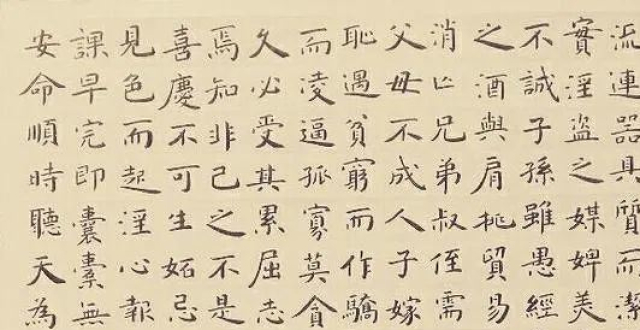 流連器具質而潔
實淫盜之媒婢美
不誠子孫雖愚經
之酒與肩挑貿易
消亡兄弟叔侄需
父母不成人子嫁
恥遇貧窮而作驕
而凌逼孤寡莫貪
久必受其累屈志
焉知非己之不是
喜慶不可生妬忌
見色而起淫心報
課早完即囊橐無
安命順時聽天為